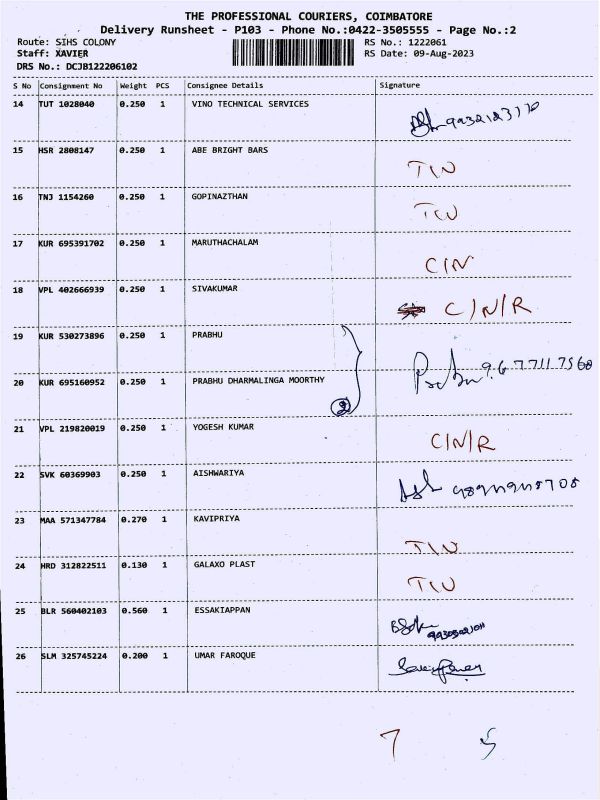 THE PROFESSIONAL COURIERS, COIMBATORE
Delivery Runsheet - P103 - Phone No.:0422-3505555 - Page No.:2
Route: SIHS COLONY RS No.: 1222061
Staff: XAVIER RS Date: 09-Aug-2023
DRS No.: DCJB122206102
S No Consignment No Weight PCS Consignee Details Signature
14 TUT 1028040 0.250 1 VINO TECHNICAL SERVICES
15 HSR 2808147 0.250 1 ABE BRIGHT BARS
16 TNJ 1154260 0.250 1 GOPINAZTHAN
17 KUR 695391702 0.250 1 MARUTHACHALAM C/N
18 VPL 402666939 0.250 1 SIVAKUMAR C/N/R
19 KUR 530273896 0.250 1 PRABHU
20 KUR 695160952 0.250 1 PRABHU DHARMALINGA MOORTHY 2
21 VPL 219820019 0.250 1 YOGESH KUMAR C/N/R
22 SVK 60369903 0.250 1 AISHWARIYA
23 MAA 571347784 0.270 1 KAVIPRIYA
24 HRD 312822511 0.130 1 GALAXO PLAST
25 BLR 560402103 0.560 1 ESSAKIAPPAN
26 SLM 325745224 0.200 1 UMAR FAROQUE
7 5